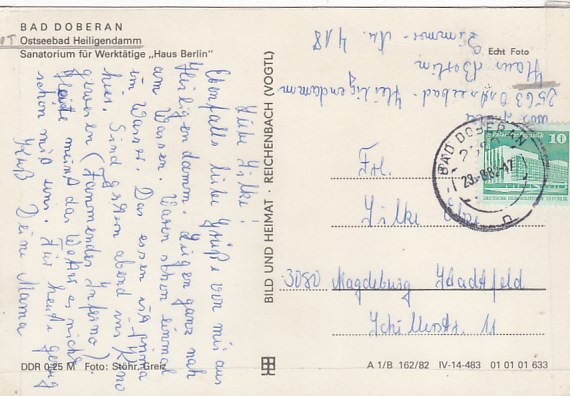 BAD DOBERAN
Ostseebad Heiligendamm
Sanatorium für Werktätige „Haus Berlin"
Liebe Silke!
Ebenfalls liebe Grüße von mir aus
Heiligendamm. Liegen ganz nah
am Wasser. Waren schon einmal
im Wasser. Das essen ist prima
hier. Sind gestern abend ins Kino
gewesen (Flammendes Inferno)
Heute meint das Wetter es nicht
schön mit uns. Für heute genug
Gruß Deine Mama
DDR 0,25 M Foto: Stöhr, Greiz
BILD UND HEIMAT · REICHENBACH (VOGTL)
Echt Foto
2563 Ostseebad-Heiligendamm
Haus Berlin
Zimmer-Nr. 418
BAD DOBERAN
10
Frl.
Silke
3080 Magdeburg Stadtfeld
Schillerstr. 11
A 1/B 162/82 IV-14-483 01 01 01 633